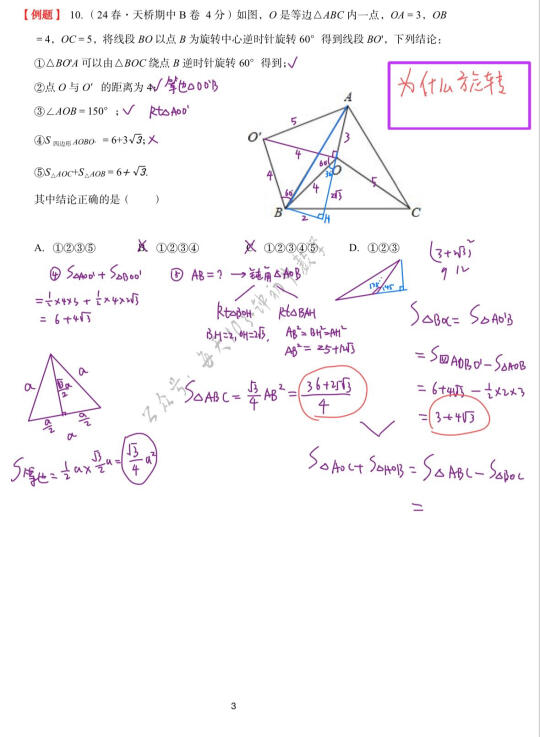 【例题】10.（24春·天桥期中B卷 4分）如图，O是等边△ABC内一点，OA=3，OB
=4，OC=5，将线段BO以点B为旋转中心逆时针旋转60°得到线段BO'，下列结论：
①△BO'A可以由△BOC绕点B逆时针旋转60°得到；√
②点O与O'的距离为4；√ 等边△OO'B
③∠AOB=150°；√ Rt△AOO'
④S四边形AOBO'=6+3√3；×
⑤S△AOC+S△AOB=6+√3.
其中结论正确的是（ ）
为什么旋转
A
5
3
O'
4
60°
O
30°
4
4
2√3
5
60°
B
2
H
C
A．①②③⑤ B．①②③④ C．①②③④⑤ D．①②③
(3+2√3)²
9 12
④ S△AOO'+S△BOO'
=½×4×3+½×4×2√3
=6+4√3
⑤ AB=? → 钝角△AOB
Rt△BOH Rt△BAH
BH=2, OH=2√3, AB²=BH²+AH²
AB²=25+12√3
S△ABC=√3/4 AB²=(36+25√3)/4
S△BOC=S△AO'B
=S四AOBO'-S△AOB
=6+4√3-½×2×3
=3+4√3
a
a
√3/2 a
a/2
a/2
a
S等边=½a×√3/2 a=√3/4 a²
S△AOC+S△AOB=S△ABC-S△BOC
=
公众号：每天10分钟初中数学
3